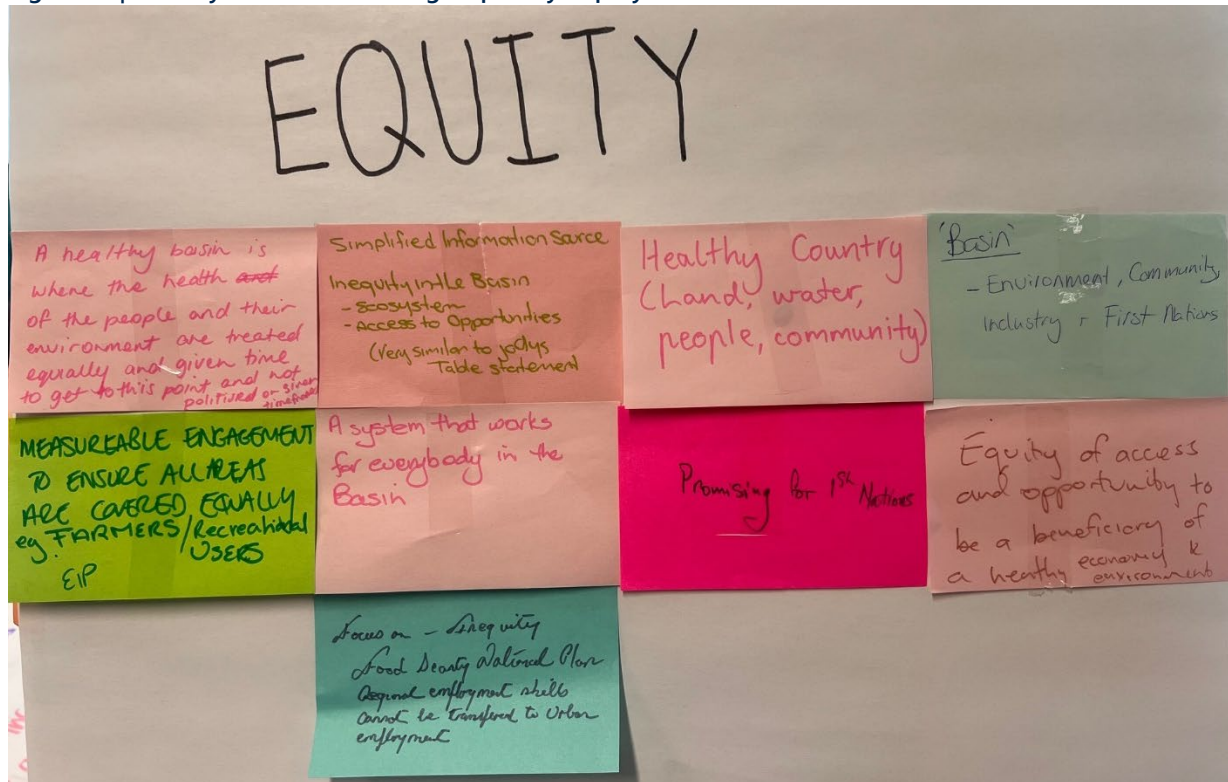 EQUITY
A healthy basin is
where the health and
of the people and their
environment are treated
equally and given time
to get to this point and not
politised or
Simplified Information Source
Inequity in the Basin
- Ecosystem
- Access to Opportunities
(Very similar to jodys
Table statement
Healthy Country
(Land, water,
people, community)
'Basin'
- Environment, Community
Industry + First Nations
MEASUREABLE ENGAGEMENT
TO ENSURE ALL AREAS
ARE COVERED EQUALLY
eg. FARMERS/Recreational
USERS
EIP
A system that works
for everybody in the
Basin
Promising for 1st Nations
Equity of access
and opportunity to
be a beneficiary of
a healthy economy &
environment
Focus on - Inequity
Food National Plan
Regional employment skills
cannot be transferred to Urban
employment